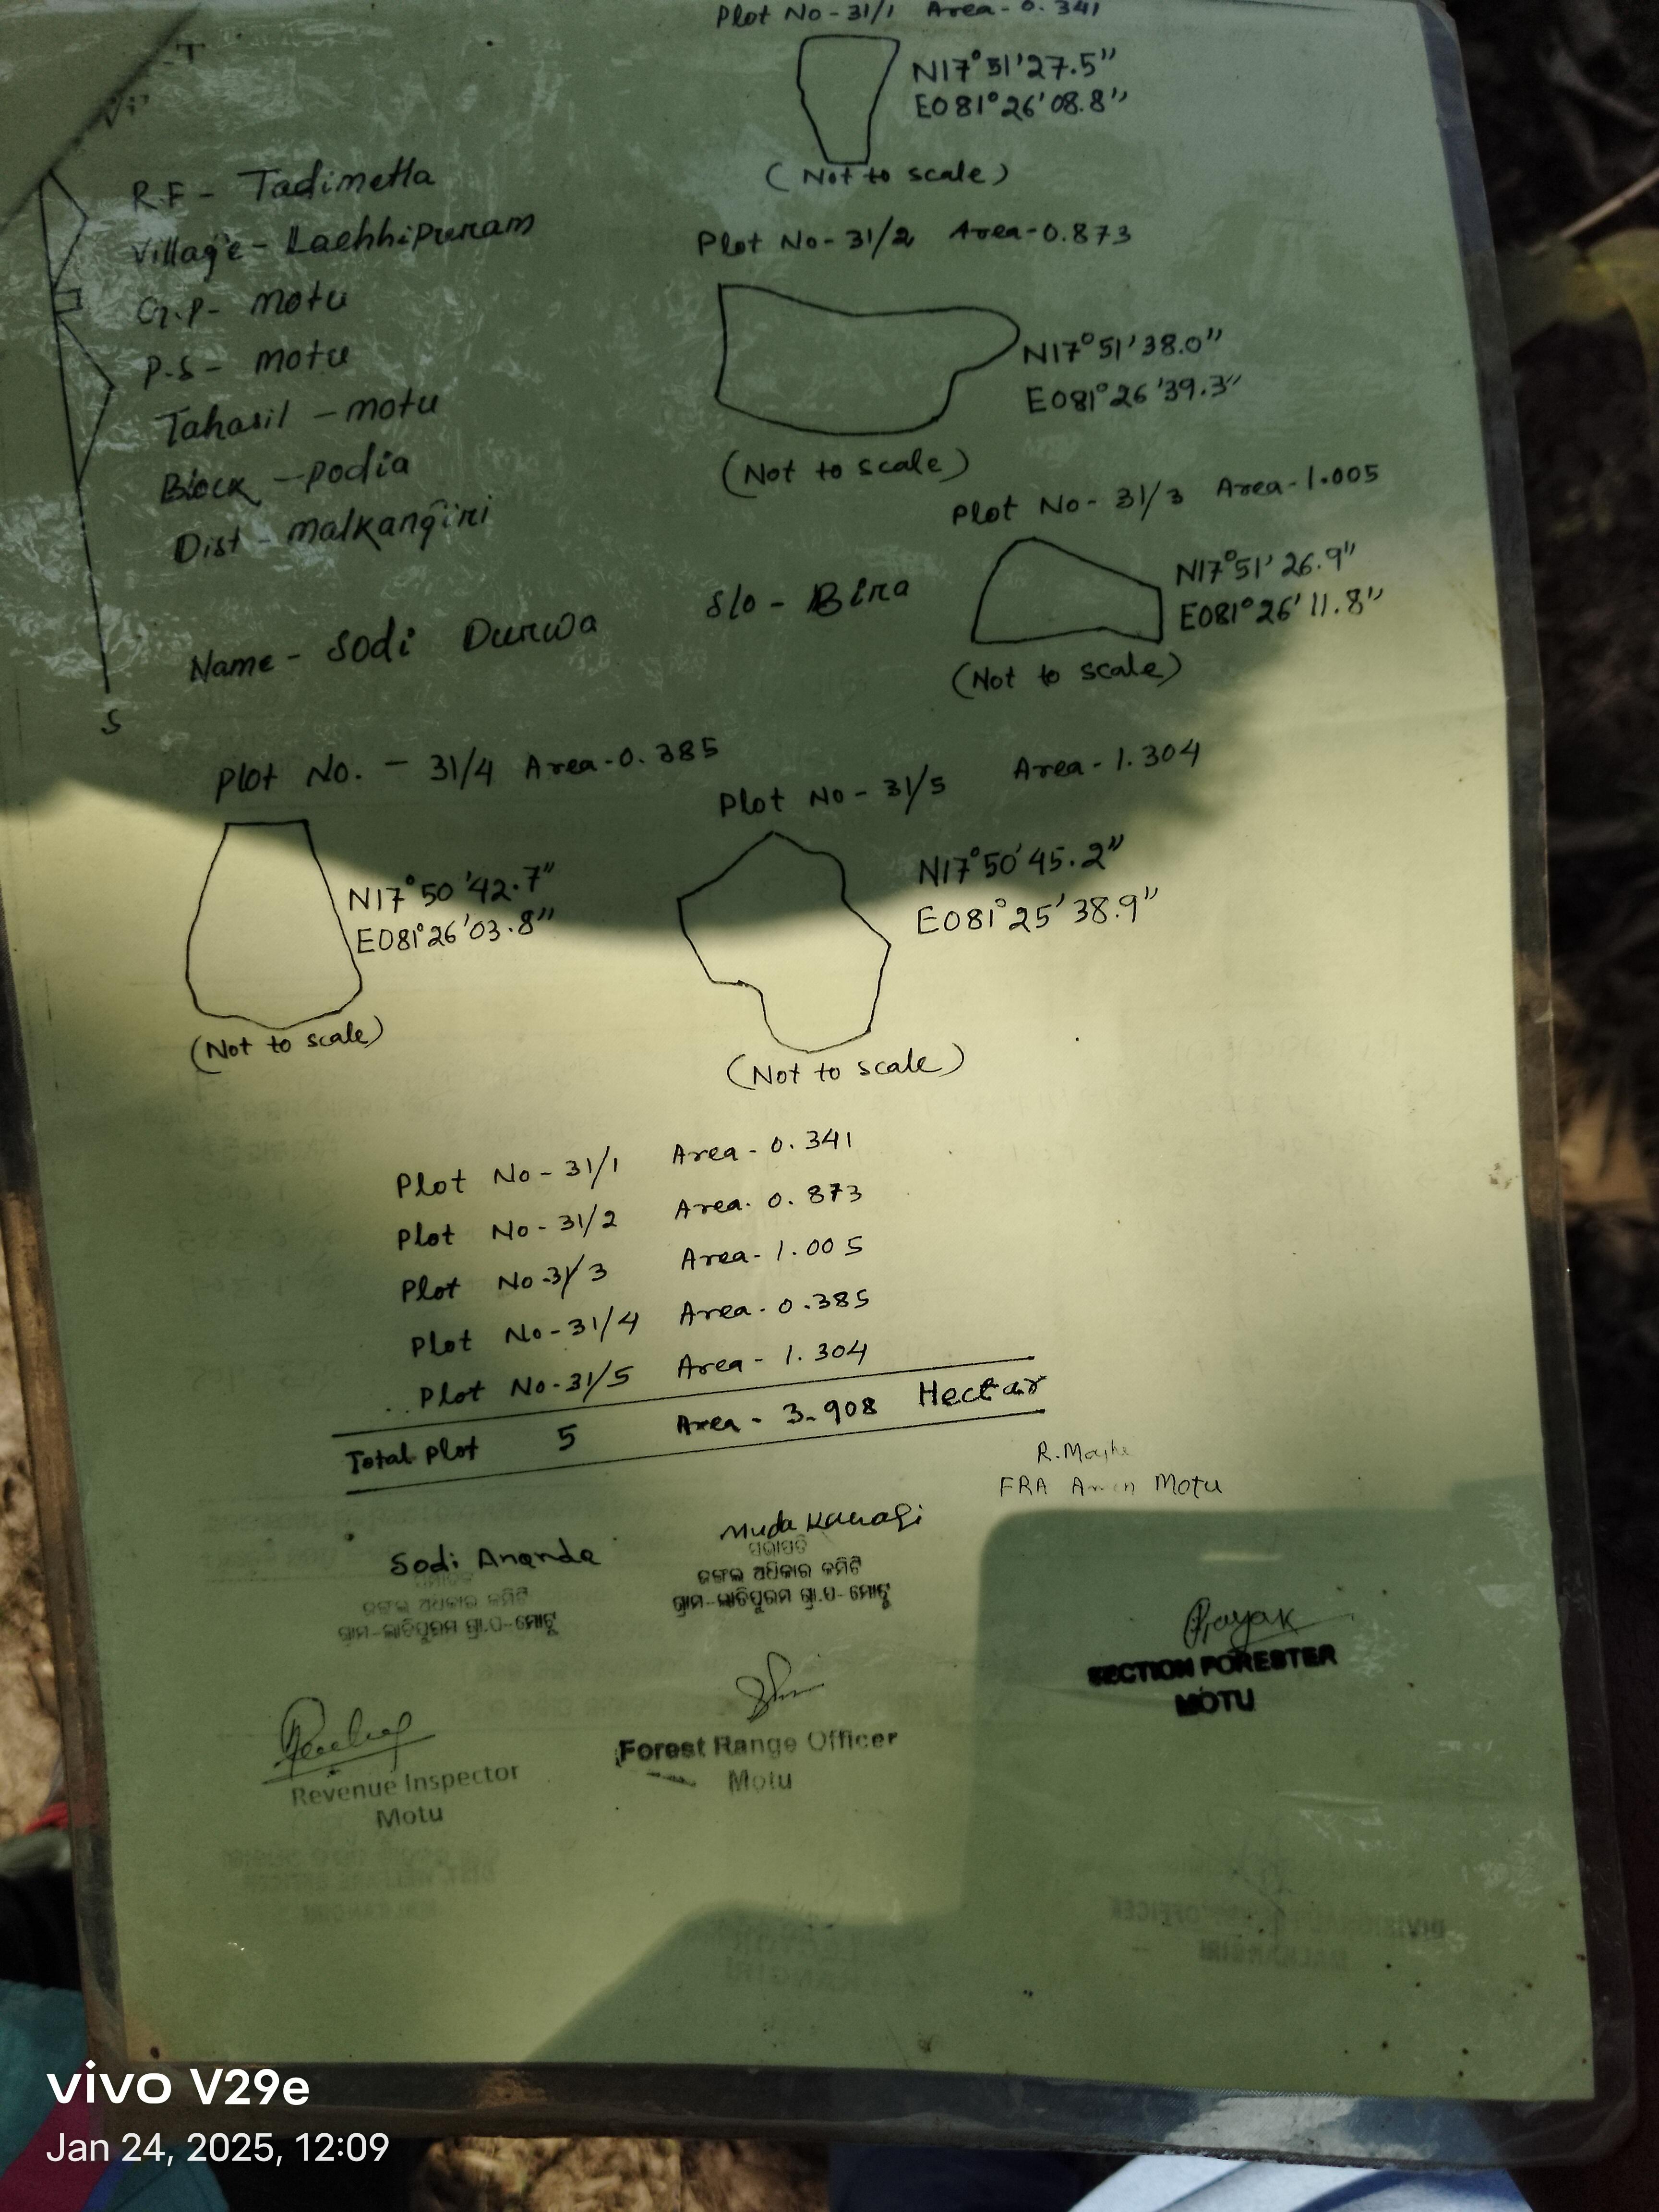 Plot No-31/1 Area-0.341
N17°51'27.5"
E081°26'08.8"
(Not to scale)
R.F - Tadimetla
Village - Lachhipuram
G.P - Motu
P.S - Motu
Tahasil - Motu
Block - Podia
Dist - Malkangiri
Plot No-31/2 Area-0.873
N17°51'38.0"
E081°26'39.3"
(Not to scale)
Plot No-31/3 Area-1.005
N17°51'26.9"
E081°26'11.8"
(Not to scale)
Name - Sodi Durwa S/o - Bira
S
Plot No. - 31/4 Area-0.385
N17°50'42.7"
E081°26'03.8"
(Not to scale)
Plot No-31/5 Area-1.304
N17°50'45.2"
E081°25'38.9"
(Not to scale)
Plot No-31/1 Area-0.341
Plot No-31/2 Area-0.873
Plot No-31/3 Area-1.005
Plot No-31/4 Area-0.385
Plot No-31/5 Area-1.304
Total Plot 5 Area-3.908 Hectar
FRA Motu
Sodi Ananda
ଜଙ୍ଗଲ ଅଧିକାର କମିଟି
Muda
ସଭାପତି
ଜଙ୍ଗଲ ଅଧିକାର କମିଟି
SECTION FORESTER
MOTU
Revenue Inspector
Motu
Forest Range Officer
Motu
vivo V29e
Jan 24, 2025, 12:09